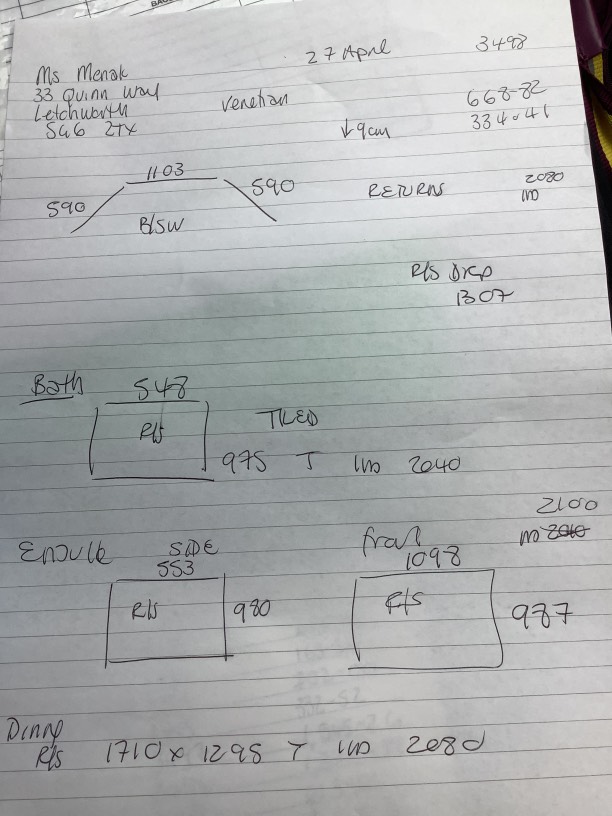 27 April 3498
Ms Menak
33 Quinn Way
Letchworth
SG6 2TX
Venetian
668-82
334.41
↓9cm
1103
590 590
B/SW
RETURNS 2080
R/S Drop
1307
Bath 548
R/S
TILED
975 T 2040
2100
SIDE Front
553 1098
R/S 980
R/S 987
Dinng
R/S 1710 x 1298 T 2080